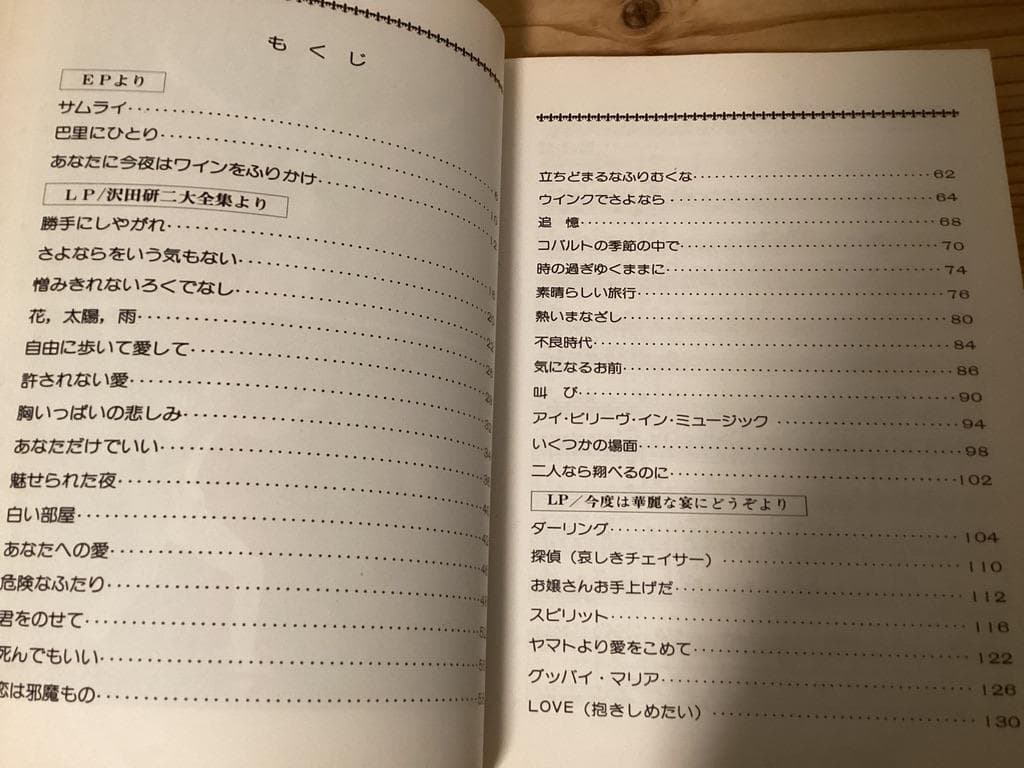 もくじ
EPより
サムライ
巴里にひとり
あなたに今夜はワインをふりかけ
LP/沢田研二大全集より
勝手にしやがれ
さよならをいう気もない
憎みきれないろくでなし
花，太陽，雨
自由に歩いて愛して
許されない愛
胸いっぱいの悲しみ
あなただけでいい
魅せられた夜
白い部屋
あなたへの愛
危険なふたり
君をのせて
死んでもいい
恋は邪魔もの
立ちどまるなふりむくな 62
ウインクでさよなら 64
追憶 68
コバルトの季節の中で 70
時の過ぎゆくままに 74
素晴らしい旅行 76
熱いまなざし 80
不良時代 84
気になるお前 86
叫び 90
アイ・ビリーヴ・イン・ミュージック 94
いくつかの場面 98
二人なら翔べるのに 102
LP/今度は華麗な宴にどうぞより
ダーリング 104
探偵（哀しきチェイサー） 110
お嬢さんお手上げだ 112
スピリット 116
ヤマトより愛をこめて 122
グッバイ・マリア 126
LOVE（抱きしめたい） 130